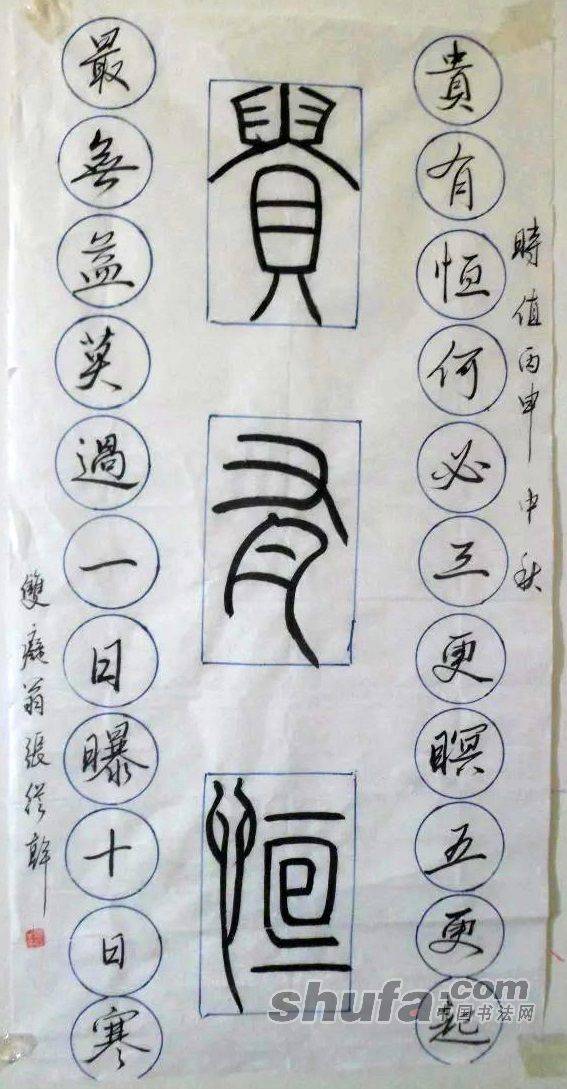 時值丙申中秋
貴有恒何必三更瞑五更起
貴有恒
最無益莫過一日曝十日寒
雙癡翁張從幹
shufa.com
中国书法网